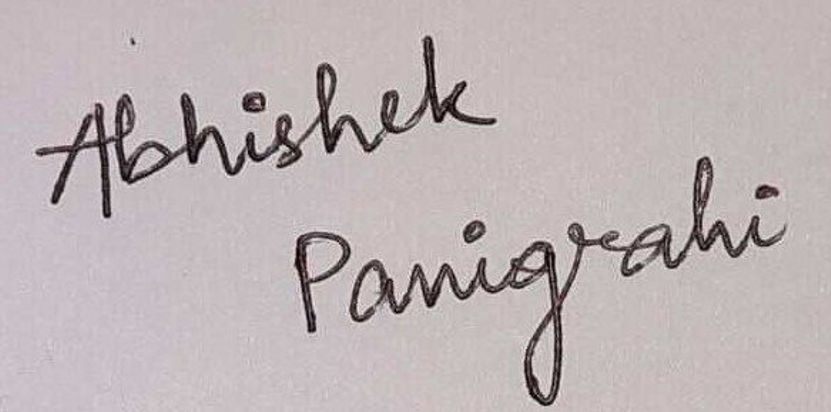 Abhishek
Panigrahi